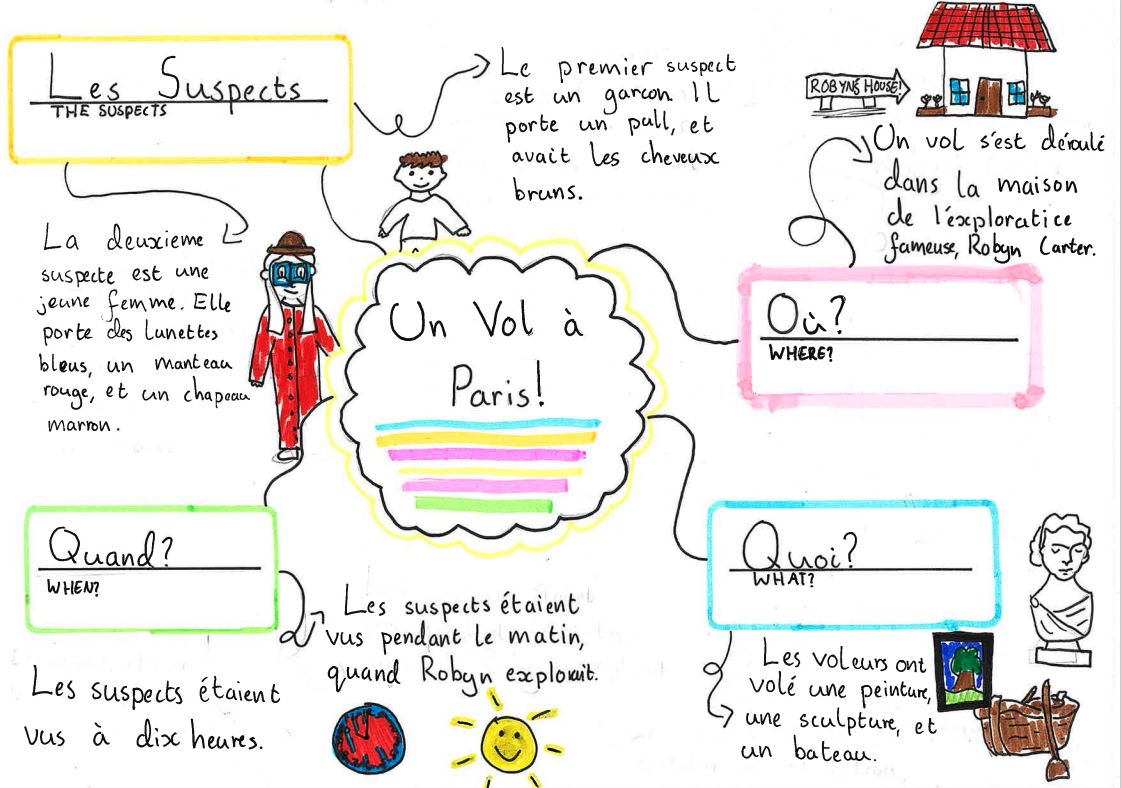 Les Suspects
THE SUSPECTS
Le premier suspect
est un garcon. IL
porte un pull, et
avait les cheveux
bruns.
ROBYN'S HOUSE!
Un vol s'est déroulé
dans la maison
de l'exploratice
fameuse, Robyn Carter.
La deuxieme
suspecte est une
jeune femme. Elle
porte des lunettes
bleus, un manteau
rouge, et un chapeau
marron.
Un Vol à
Paris!
Où?
WHERE?
Quand?
WHEN?
Les suspects étaient
vus pendant le matin,
quand Robyn explorait.
Les suspects étaient
vus à dix heures.
Quoi?
WHAT?
Les voleurs ont
volé une peinture,
une sculpture, et
un bateau.